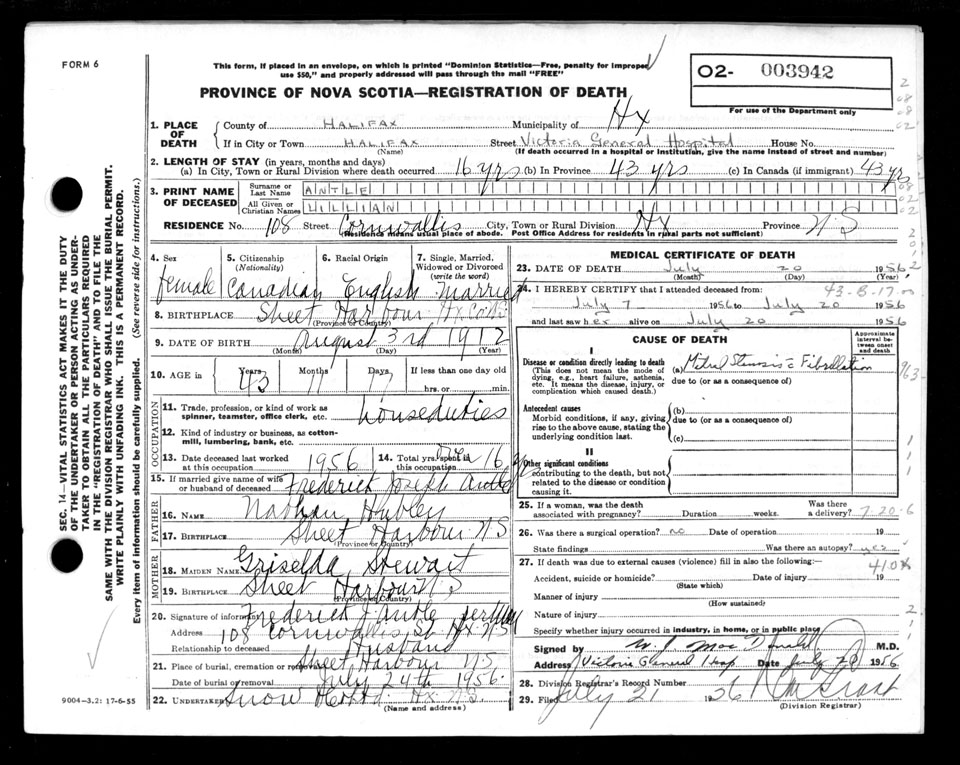 FORM 6
This form, if placed in an envelope, on which is printed "Dominion Statistics—Free, penalty for improper
use $50," and properly addressed will pass through the mail "FREE"
PROVINCE OF NOVA SCOTIA—REGISTRATION OF DEATH
02- 003942
For use of the Department only
1. PLACE OF DEATH
County of HALIFAX Municipality of Hx
If in City or Town HALIFAX Street Victoria General Hospital House No.
(Name) (If death occurred in a hospital or institution, give the name instead of street and number)
2. LENGTH OF STAY (in years, months and days)
(a) In City, Town or Rural Division where death occurred 16 yrs (b) In Province 43 yrs (c) In Canada (if immigrant) 43 yrs
3. PRINT NAME OF DECEASED
Surname or Last Name ANTLE
All Given or Christian Names LILLIAN
RESIDENCE No. 108 Street Cornwallis City, Town or Rural Division Hx Province N S
(Residence means usual place of abode. Post Office Address for residents in rural parts not sufficient)
4. Sex 5. Citizenship (Nationality) 6. Racial Origin 7. Single, Married, Widowed or Divorced (write the word)
female Canadian English Married
8. BIRTHPLACE Sheet Harbour Hx Co NS
(Province or Country)
9. DATE OF BIRTH August 3rd 1912
(Month) (Day) (Year)
10. AGE in Years 43 Months 11 Days 17 If less than one day old
hrs. or min.
OCCUPATION
11. Trade, profession, or kind of work as spinner, teamster, office clerk, etc. houseduties
12. Kind of industry or business, as cotton-mill, lumbering, bank, etc.
13. Date deceased last worked at this occupation 1956 14. Total yrs. spent in this occupation 16 yrs
15. If married give name of wife or husband of deceased Frederick Joseph Antle
FATHER
16. Name Nathan Hubley
17. Birthplace Sheet Harbour N S
(Province or Country)
MOTHER
18. Maiden Name Griselda Stewart
19. Birthplace Sheet Harbour N S
(Province or Country)
20. Signature of informant Frederick J Antle
Address 108 Cornwallis St Hx N S
Relationship to deceased Husband
21. Place of burial, cremation or removal Sheet Harbour N S
Date of burial or removal July 24th 1956
22. Undertaker Snow Hx N.S.
(Name and address)
MEDICAL CERTIFICATE OF DEATH
23. DATE OF DEATH July 20 1956
(Month) (Day)
24. I HEREBY CERTIFY that I attended deceased from: 43-8-17
July 7 1956 to July 20 1956
and last saw her alive on July 20 1956
CAUSE OF DEATH
Approximate interval between onset and death
I
Disease or condition directly leading to death
(This does not mean the mode of dying, e.g., heart failure, asthenia, etc. It means the disease, injury, or complication which caused death.)
(a) Mitral Stenosis c Fibrillation
due to (or as a consequence of)
Antecedent causes
Morbid conditions, if any, giving rise to the above cause, stating the underlying condition last.
(b)
due to (or as a consequence of)
(c)
II
Other significant conditions
contributing to the death, but not related to the disease or condition causing it.
25. If a woman, was the death associated with pregnancy? Duration weeks. Was there a delivery? 7-20-6
26. Was there a surgical operation? no Date of operation 19
State findings Was there an autopsy? yes
27. If death was due to external causes (violence) fill in also the following:—
Accident, suicide or homicide? Date of injury 19
(State which)
Manner of injury
(How sustained)
Nature of injury
Specify whether injury occurred in industry, in home, or in public place
Signed by W. J. MacDonald M.D.
Address Victoria General Hosp Date July 20 1956
28. Division Registrar's Record Number
29. Filed July 21 1956
(Division Registrar)
SEC. 14—VITAL STATISTICS ACT MAKES IT THE DUTY
OF THE UNDERTAKER OR PERSON ACTING AS UNDER-
TAKER TO OBTAIN ALL THE PARTICULARS REQUIRED
IN THE "REGISTRATION OF DEATH" AND TO FILE THE
SAME WITH THE DIVISION REGISTRAR WHO SHALL ISSUE THE BURIAL PERMIT.
WRITE PLAINLY WITH UNFADING INK. THIS IS A PERMANENT RECORD.
Every item of information should be carefully supplied. (See reverse side for instructions.)
9004—3.2: 17-6-55